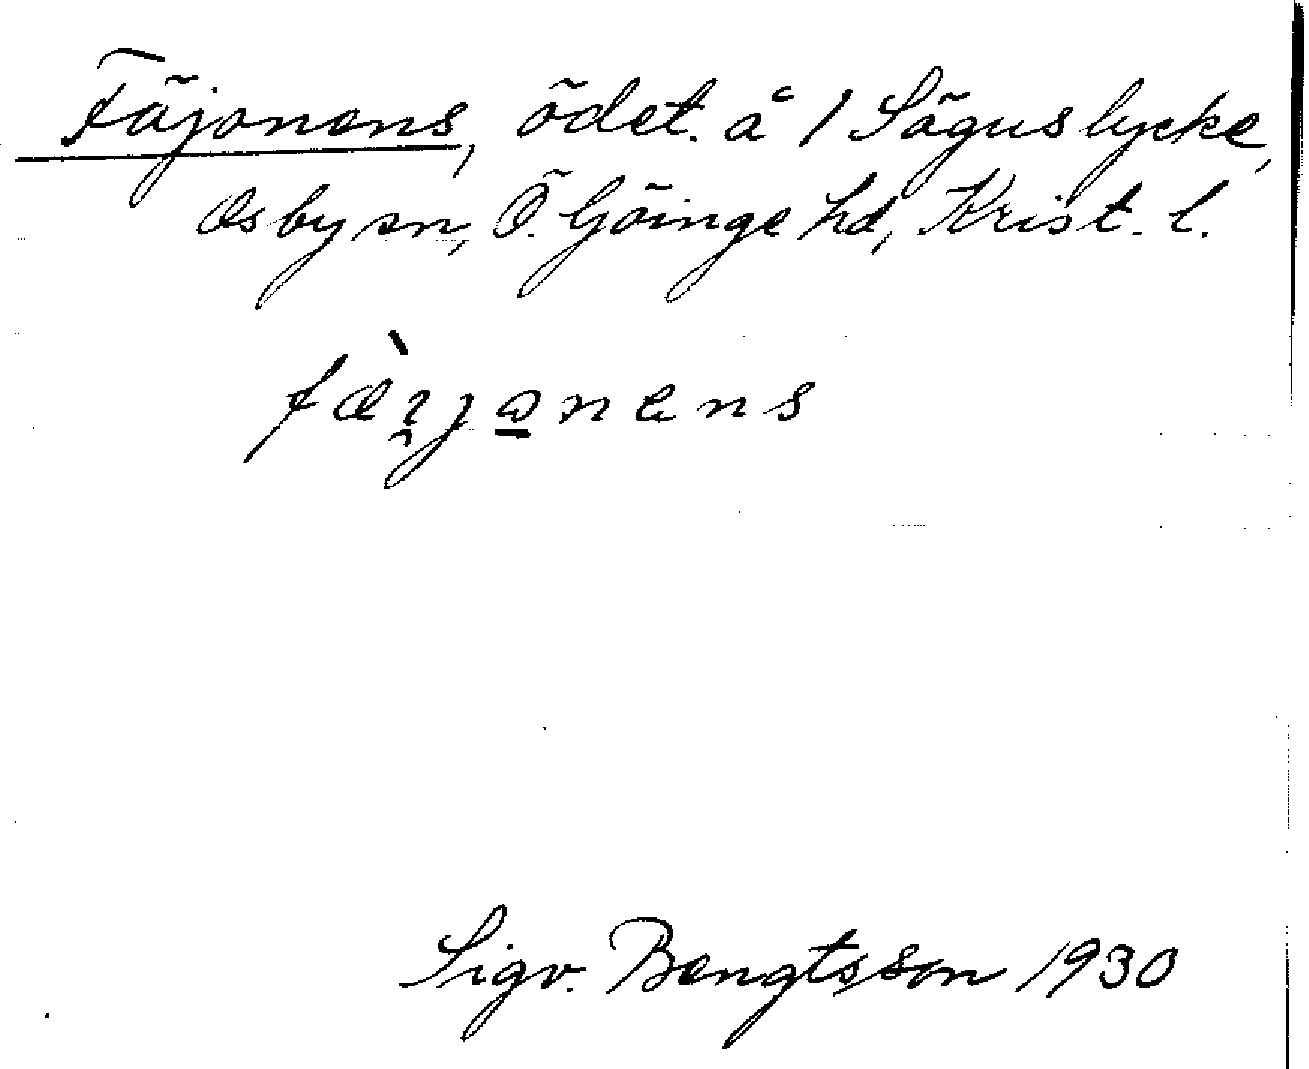 Fäjonens, ödet. å 1 Sågus lycke,
Osby sn, Ö. Göinge hd, Krist. l.
fæ̀ɪjɔnens
Sigv. Bengtsson 1930